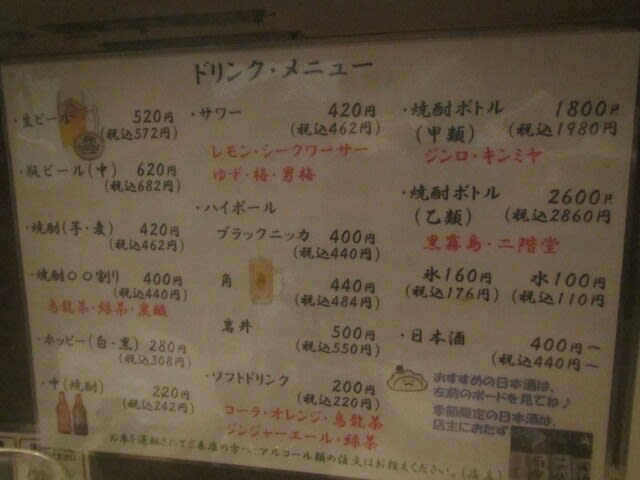 ドリンク・メニュー
・生ビール 520円
(税込572円)
・瓶ビール(中) 620円
(税込682円)
・焼酎(芋・麦) 420円
(税込462円)
・焼酎〇〇割り 400円
(税込440円)
烏龍茶・緑茶・炭酸
・ホッピー(白・黒) 280円
(税込308円)
・中(焼酎) 220円
(税込242円)
・サワー 420円
(税込462円)
レモン・シークワーサー
ゆず・梅・男梅
・ハイボール
ブラックニッカ 400円
(税込440円)
角 440円
(税込484円)
岩井 500円
(税込550円)
・ソフトドリンク 200円
(税込220円)
コーラ・オレンジ・烏龍茶
ジンジャーエール・緑茶
・焼酎ボトル 1800円
(甲類) (税込1980円)
ジンロ・キンミヤ
・焼酎ボトル 2600円
(乙類) (税込2860円)
黒霧島・二階堂
氷160円 水100円
(税込176円) (税込110円)
・日本酒 400円~
(税込440円~
おすすめの日本酒は、
左前のボードを見てね♪
季節限定の日本酒は、
店主におたず
お車を運転されてご来店の方へ、アルコール類の注文はお控えください。(店主)